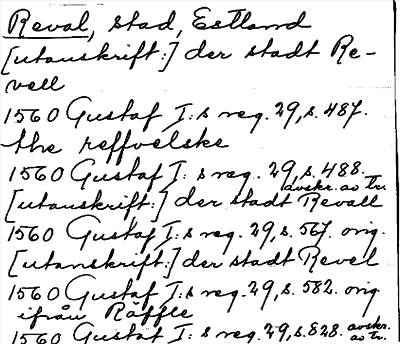 Reval, stad, Estland
[utanskrift:] der stadt Re-
vell
1560 Gustaf I:s reg. 29, s. 487.
the reffvelske
1560 Gustaf I:s reg. 29, s. 488.
avskr. av tr.
[utanskrift:] der stadt Revall
1560 Gustaf I:s reg. 29, s. 567. orig.
[utanskrift:] der stadt Revel
1560 Gustaf I:s reg. 29, s. 582. orig
ifrån Räffle
1560 Gustaf I:s reg. 29, s. 828. avskr.
av tr.